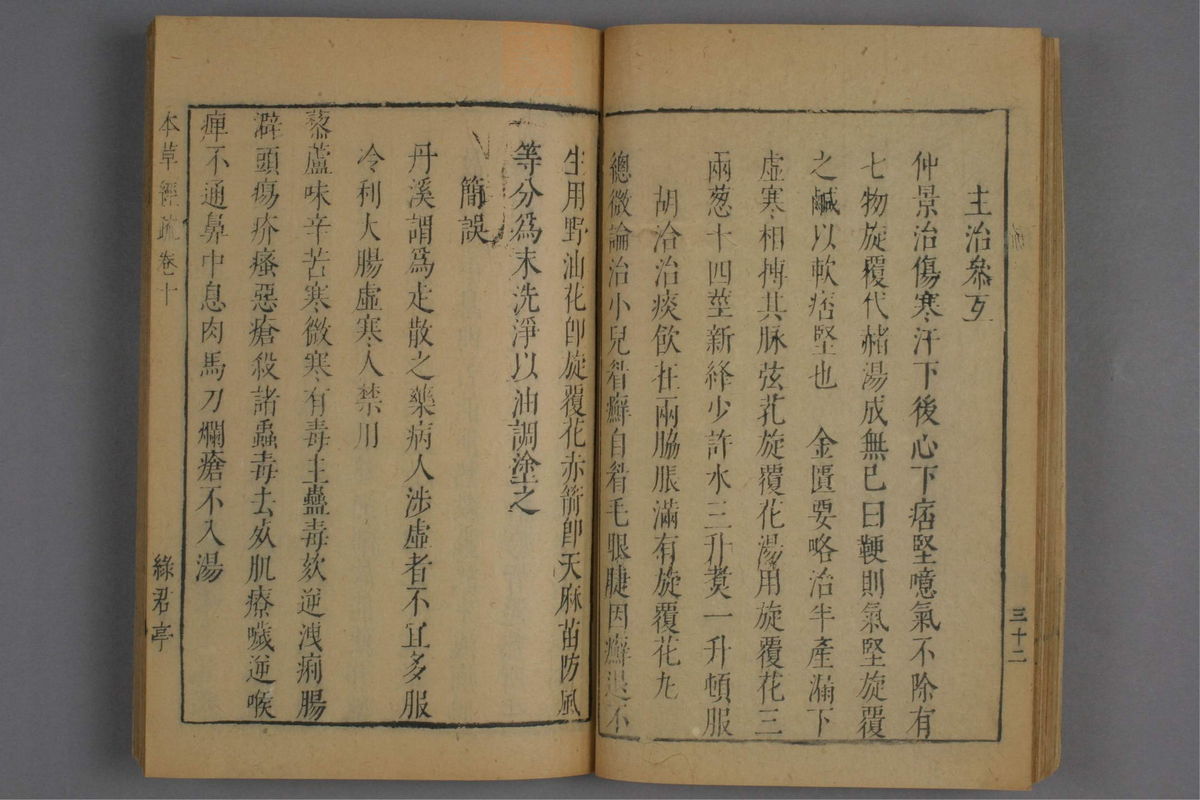 三十二
主治參互
仲景治傷寒汗下後心下痞堅噫氣不除有
七物旋覆代赭湯成無已曰鞕則氣堅旋覆
之鹹以軟痞堅也 金匱要略治半產漏下
虛寒相摶其脉弦芤旋覆花湯用旋覆花三
兩葱十四莖新絳少許水三升煑一升頓服
胡洽治痰飲在兩脇脹滿有旋覆花丸
總微論治小兒眉癬自眉毛眼睫因癬退不
生用野油花卽旋覆花赤箭卽天麻苗防風
等分爲末洗淨以油調塗之
簡誤
丹溪謂爲走散之藥病人涉虛者不宜多服
冷利大腸虛寒人禁用
藜蘆味辛苦寒微寒有毒主蠱毒欬逆洩痢腸
澼頭瘍疥瘙惡瘡殺諸蟲毒去死肌療噦逆喉
痺不通鼻中息肉馬刀爛瘡不入湯
本草經疏 卷十 綠君亭